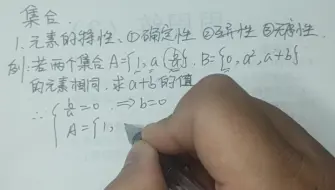 集合.
1. 元素的特性、①确定性 ②互异性 ③无序性.
例:若两个集合A={1, a, b/a}, B={0, a², a+b}
的元素相同. 求a+b的值
∴ { b/a=0 ⇒ b=0
A={1,